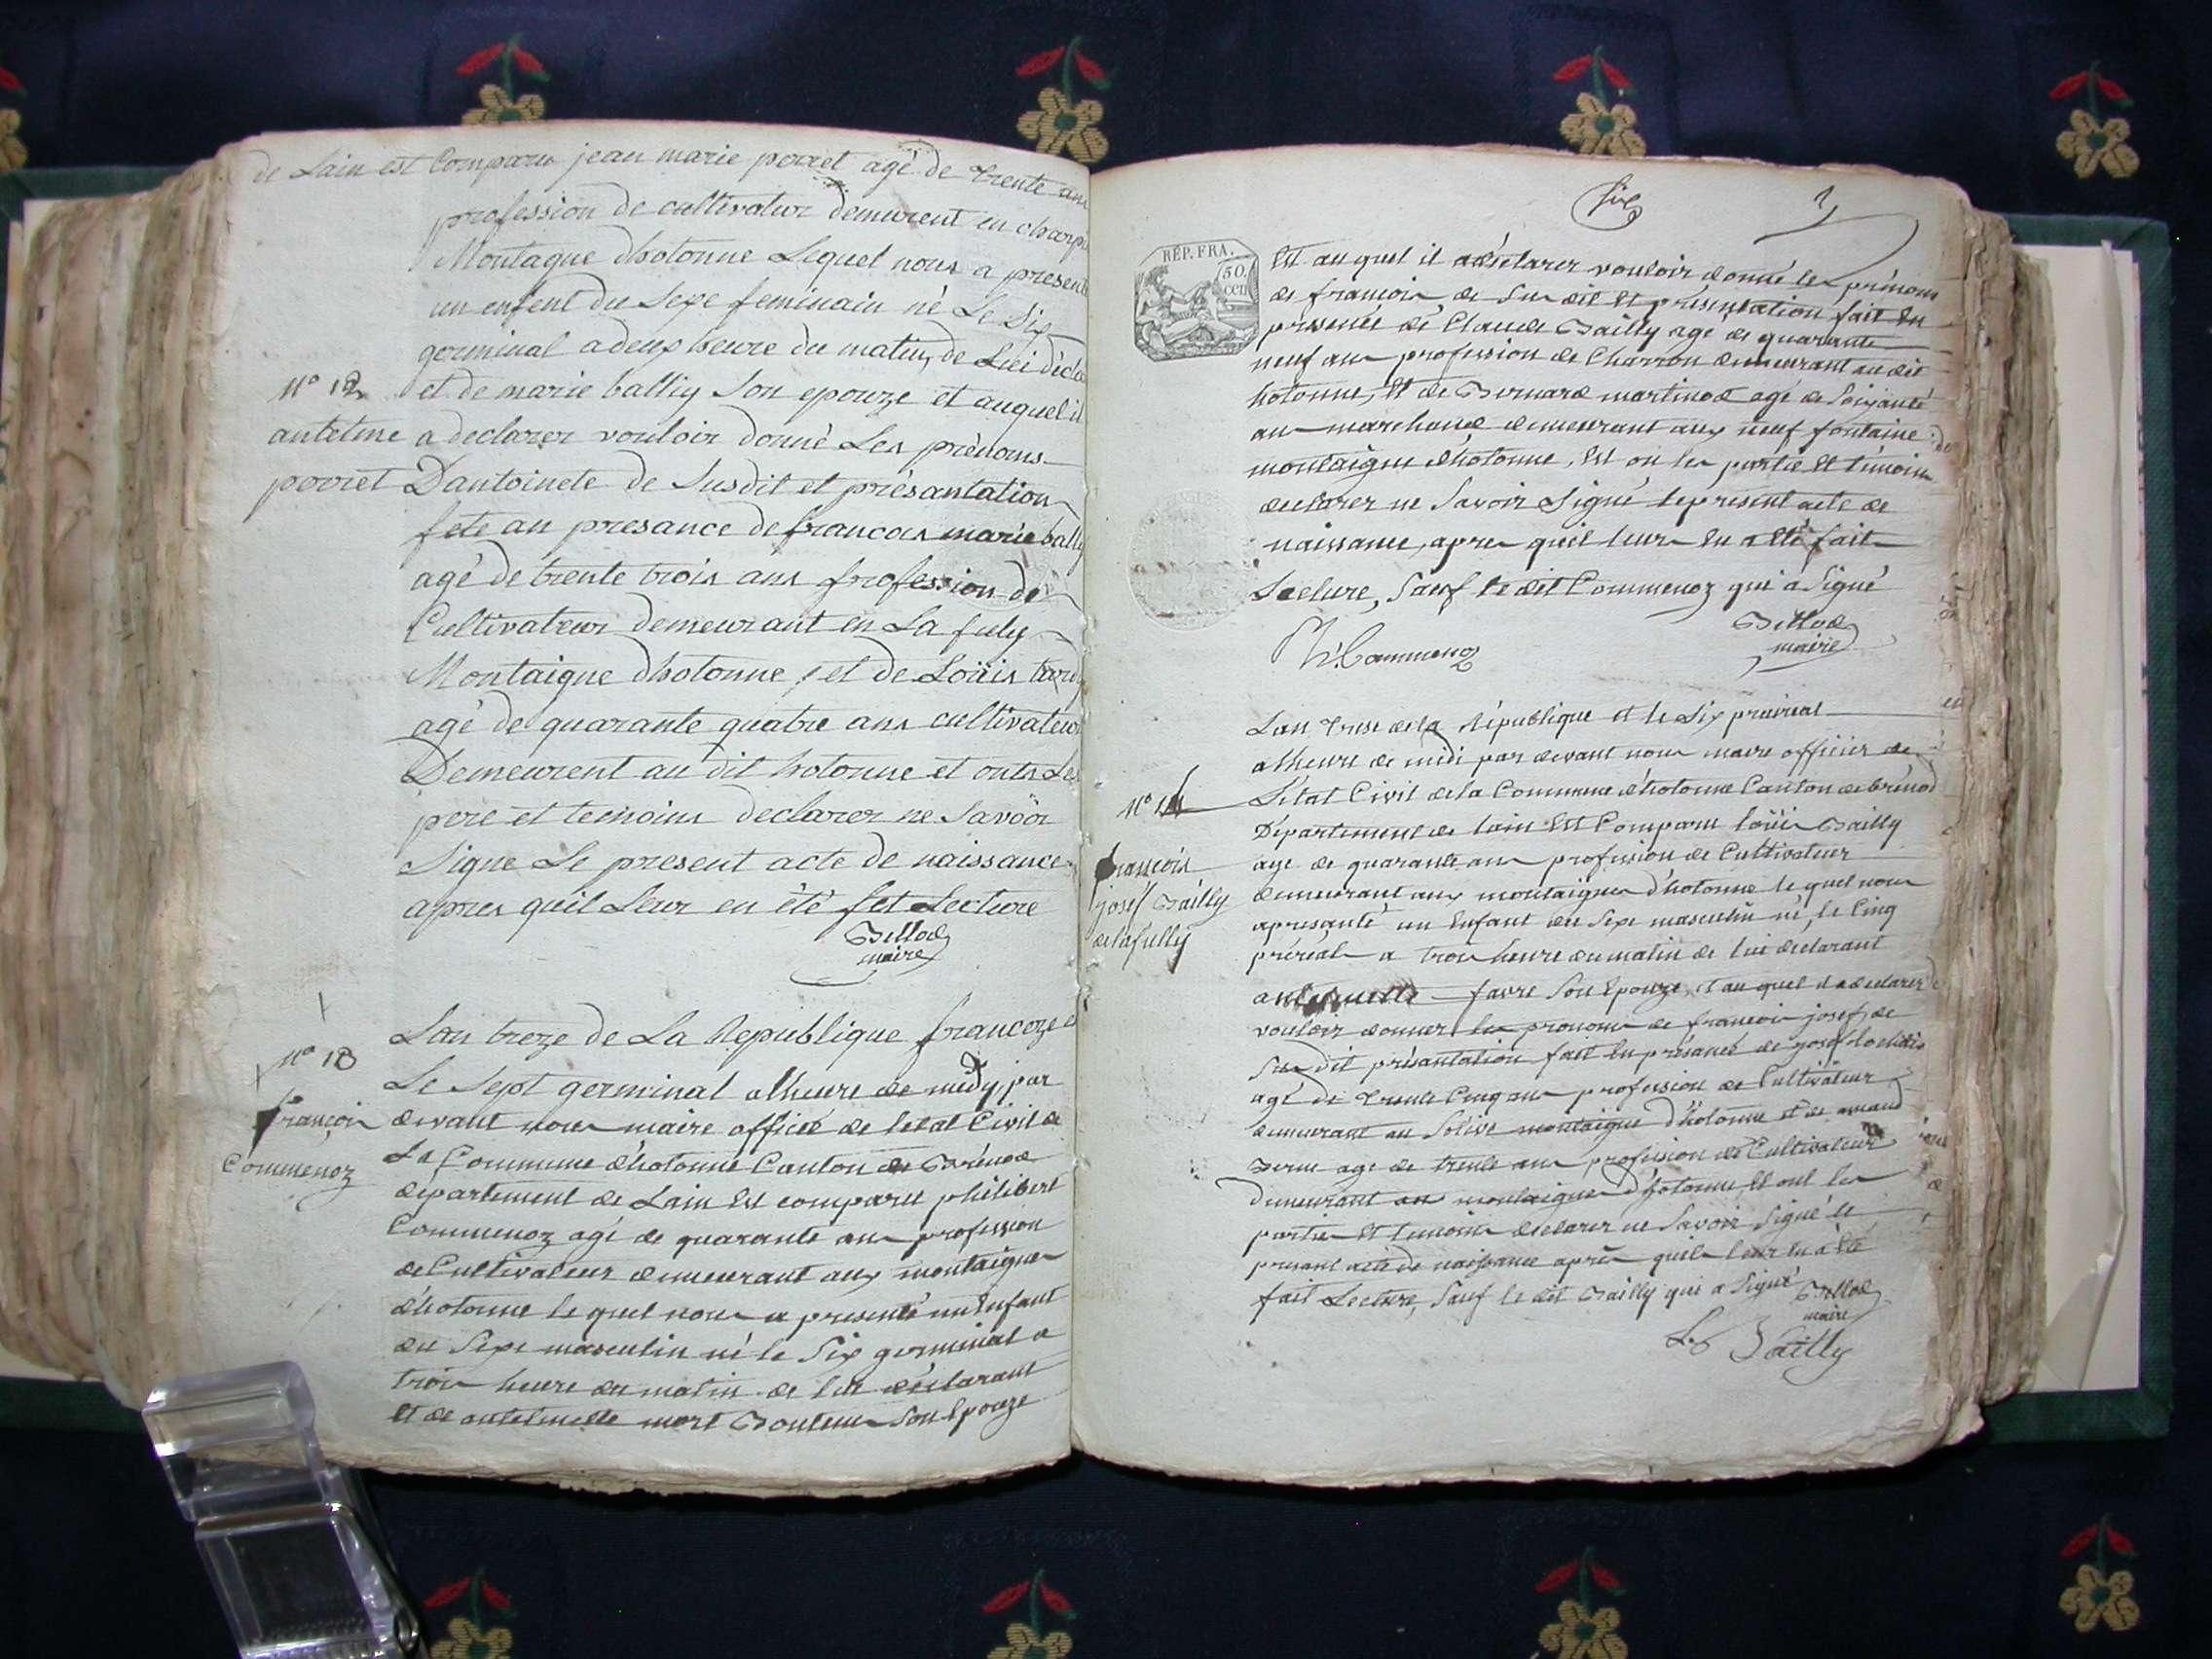 de Lain est Comparu jean marie perret agé de trente ans
profession de cultivateur demeurent en
Montagne dhotonne Lequel nous a presente
un enfent du Sexe feminain né Le Six
germinal a deux heure du matin, de Lui
et de marie bally Son epouze et auquel il
Nº 12
antelme
perret
a declarer vouloir donné Les prénoms
Dantoinete de Susdit et présantation
fete an presance de francois marie bally
agé de trente trois ans profession de
Cultivateur demeurant en La fuly
Montaigne dhotonne, et de Loüis
agé de quarante quatre ans cultivateur
Demeurent au dit hotonne et onts Les
pere et temoins declarer ne Savoör
Signe Le present acte de naissance
apres quil Leur en été fet Lecture
Billod
maire
Lan treze de La Republique francoze et
Nº 13
françois
Commenoz
Le Sept germinal alheure de midy, par
devant nous maire officié de letat Civil de
La Commune d'hotonne Canton de Brénod
département de Lain Est comparu philibert
Commenoz agé de quarante ans profession
de Cultivateur demeurant aux montaignes
d'hotonne le quel nous a presenté un Enfant
du Sexe masculin né le Six germinal a
trois heure du matin de lui déclarant
Et de antelmette mort Son Epouze
Six
RÉP. FRA.
50.
cen
Et au quel il a déclarer vouloir donné les prénoms
de françois de Sus dit Et présentation fait En
présence de Claude Bailly age de quarante
neuf ans profession de Charron demeurant au dit
hotonne, Et de Bernard martinod agé de Soixante
ans marchand demeurant aux neuf fontaine
montaigne d'hotonne, Et on les partie Et témoins
declarer ne Savoir Signé le present acte de
naissance, apres quil leurs En a Eté fait
Lecture, Sauf le dit Commenoz qui a Signé
Ph. Commenoz
Billod
maire
Lan trese de la République et le Six prairial
alheure de midi par devant nous maire officier de
Nº 14
françois
joséf Bailly
de la fully
L'état Civil de la Commune d'hotonne Canton de brénod
Département de lain Est Comparu loüis Bailly
age de quarante ans profession de Cultivateur
demeurant aux montaignes d'hotonne le quel nous
a presanté un Enfant du Sexe masculin né, le Cinq
préréal a trois heure du matin de lui declarant
favre Son Epouze, Et au quel il a declarer
vouloir donner les pronoms de francois josef, de
Sus dit présantation fait En présance de josef
agé de trente Cinq ans profession de Cultivateur
demeurant au Solive montaigne d'hotonne et de
age de trente ans profession de Cultivateur
demeurant montaignes d'hotonne, Et ont les
parties Et temoins declarer ne Savoir Signé le
présent acte de naissance après quil leur En a Eté
fait Lecture, Sauf le dit Bailly qui a Signé
Billod
maire
Ls Bailly